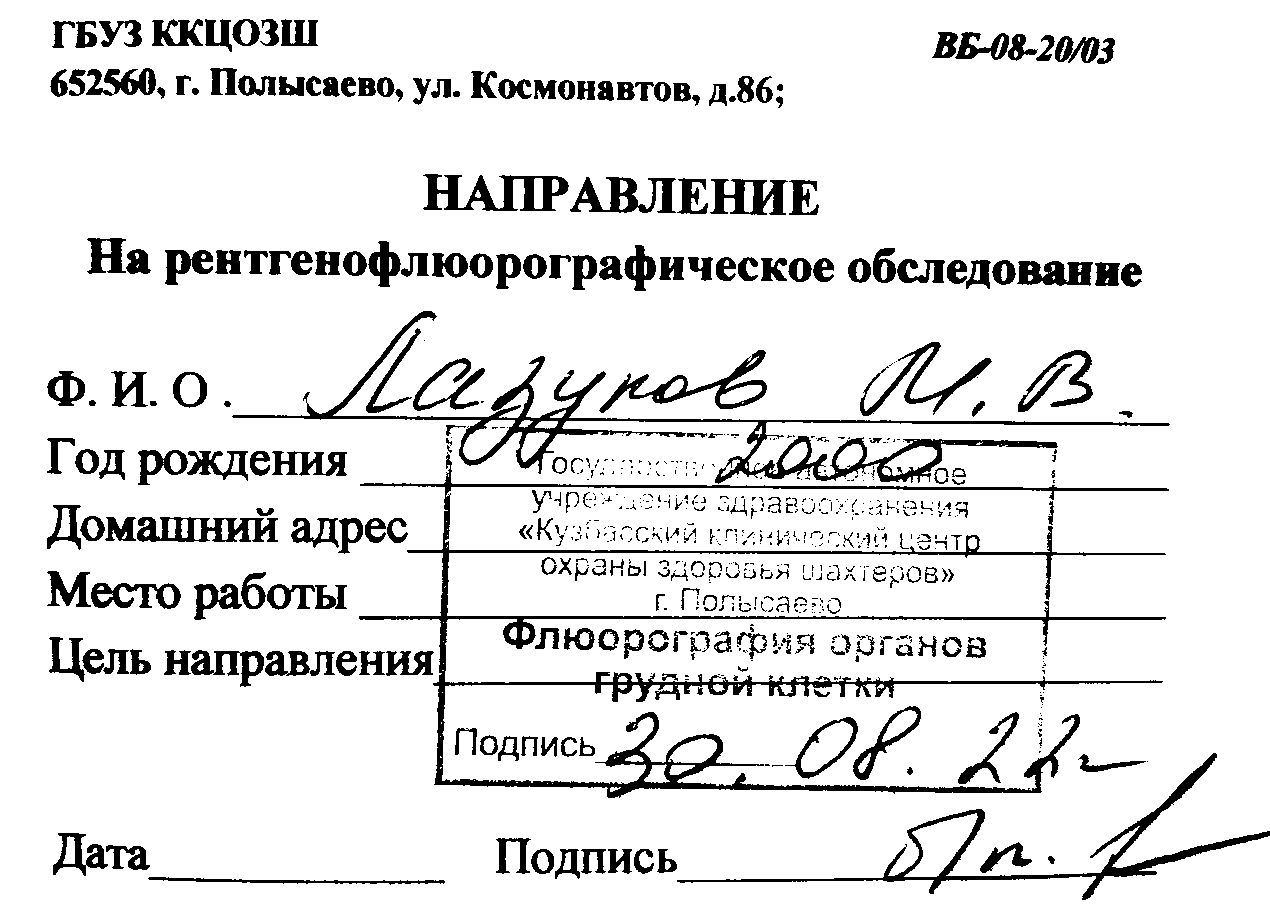 ГБУЗ ККЦОЗШ
ВБ-08-20/03
652560, г. Полысаево, ул. Космонавтов, д.86;
НАПРАВЛЕНИЕ
На рентгенофлюорографическое обследование
Ф. И. О. Лазуков М. В.
Год рождения 2000
Домашний адрес
Место работы
Цель направления
Государственное автономное
учреждение здравоохранения
«Кузбасский клинический центр
охраны здоровья шахтеров»
г. Полысаево
Флюорография органов
грудной клетки
Подпись 30.08.22г
Дата Подпись